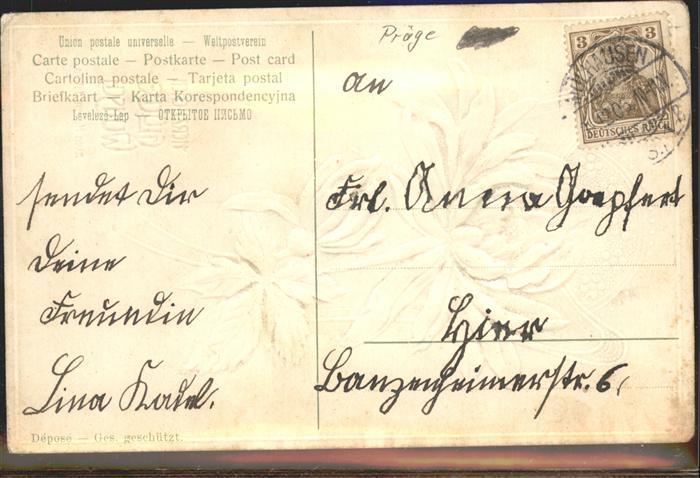 Union postale universelle — Weltpostverein
Carte postale — Postkarte — Post card
Cartolina postale — Tarjeta postal
Briefkaart — Karta Korespondencyjna
Levelezö-Lap — ОТКРЫТОЕ ПИСЬМО
Präge
3 3
DEUTSCHES REICH
MÜLHAUSEN
An
Frl. Anna Goepfert
Hier
Banzenheimerstr. 6.
sendet Dir
Deine
Freundin
Lina Kadel.
Déposé — Ges. geschützt.